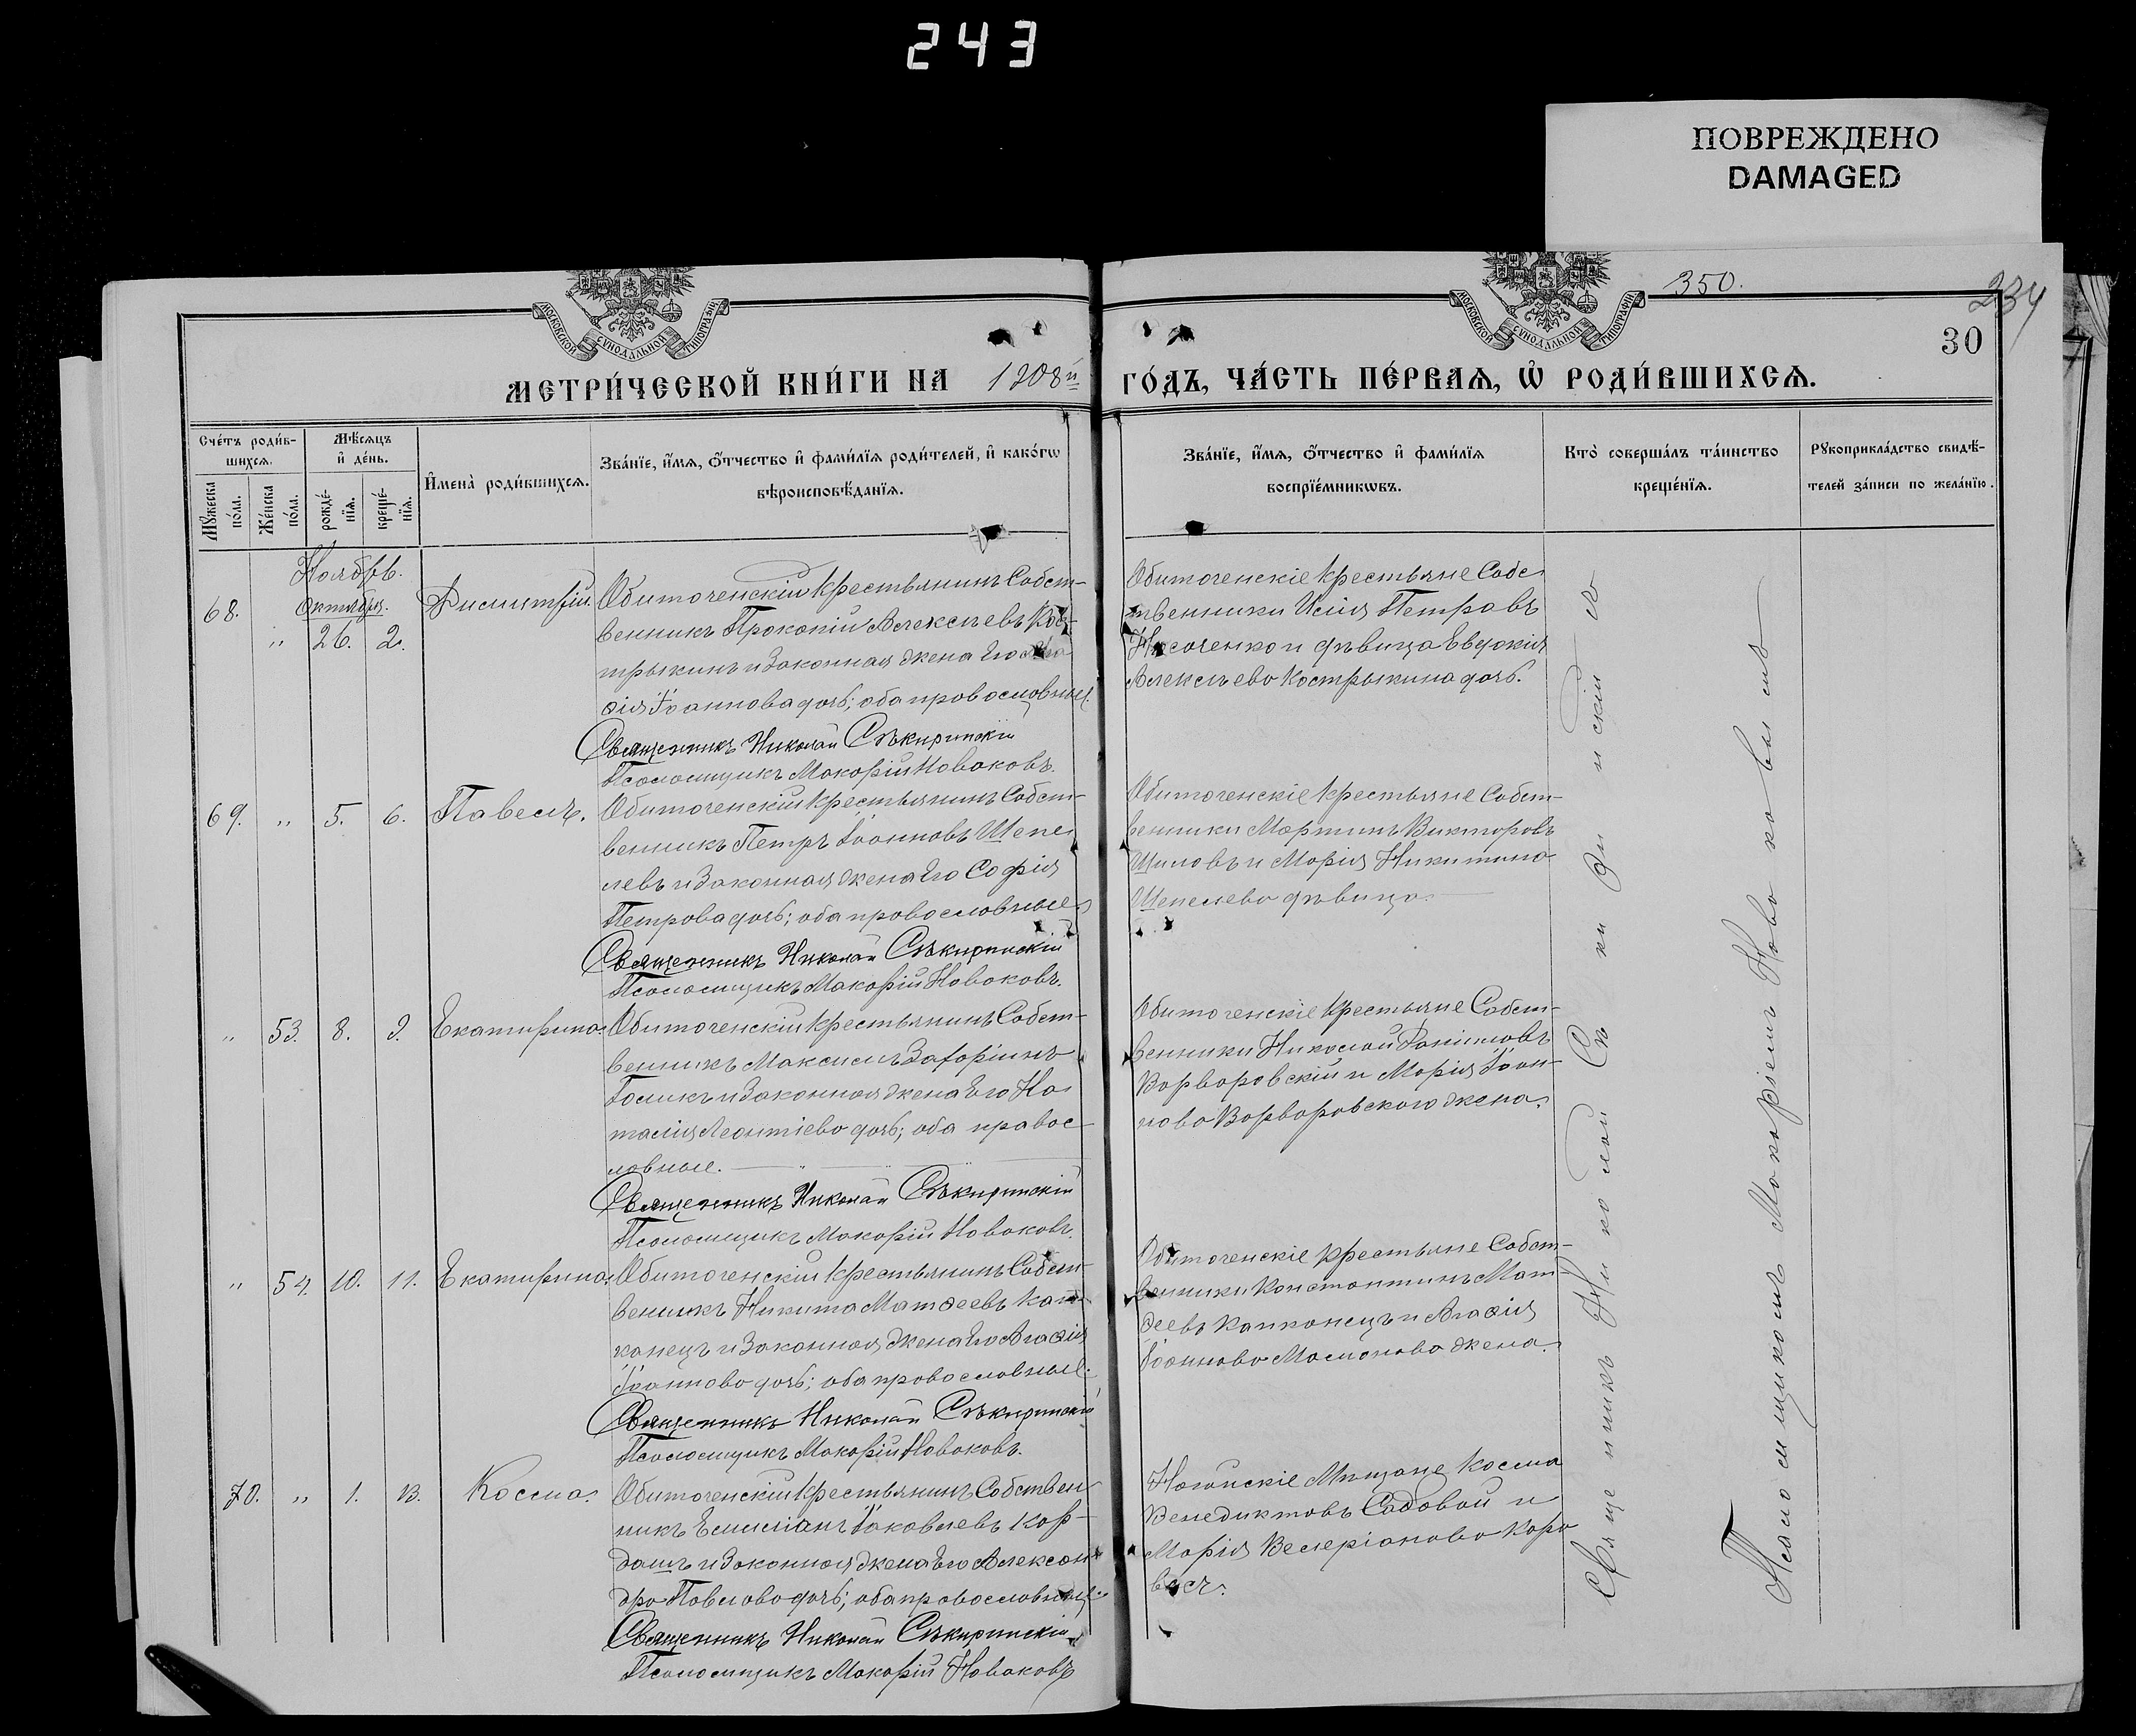 243
ПОВРЕЖДЕНО
DAMAGED
350.
234
30
МОСКОВСКОЙ СѴНОДАЛЬНОЙ ТИПОГРАФІИ
МОСКОВСКОЙ СѴНОДАЛЬНОЙ ТИПОГРАФІИ
МЕТРИ́ЧЕСКОЙ КНИ́ГИ НА 1908й ГО́ДЪ, ЧА́СТЬ ПЕ́РВАѦ, Ѡ҆ РОДИ́ВШИХСѦ.
Сче́тъ роди́в-
шихсѧ.
Мѣ́сѧцъ
и҆ де́нь.
И҆мена̀ роди́вшихсѧ.
Зва́нїе, и҆́мѧ, ѻ҆́тчество и҆ фами́лїѧ роди́телей, и҆ како́гѡ
вѣроисповѣ́данїѧ.
Зва́нїе, и҆́мѧ, ѻ҆́тчество и҆ фами́лїѧ
воспрїе́мникѡвъ.
Кто̀ соверша́лъ та́инство
креще́нїѧ.
Рꙋкоприкла́дство свидѣ́-
телей за́писи по жела́нїю.
Мꙋ́жеска
по́ла.
Же́нска
по́ла.
рожде́-
нїѧ.
креще́-
нїѧ.
Ноябрь.
Октября.
68. " 26. 2. Димитрій.
Обиточенскій крестьянинъ Собст-
венникъ Прокопій Алексѣевъ Кос-
трыкинъ и Законная жена Его
Іоаннова дочь; оба православные.
Священникъ Николай Сѣкиринскій
Псаломщикъ Макарій Новаковъ.
Обиточенскіе крестьяне Собс
твенники Илія Петровъ
и дѣвица Евдокія
Алексѣева Кострыкина дочь.
69. " 5. 6. Павелъ.
Обиточенскій крестьянинъ Собст-
венникъ Петръ Іоанновъ Шепе
левъ и Законная жена Его Софія
Петрова дочь; оба православные
Священникъ Николай Сѣкиринскій
Псаломщикъ Макарій Новаковъ.
Обиточенскіе крестьяне Собст-
венники Мартинъ Викторовъ
Шиловъ и Марія Никитина
Шепелева дѣвица.
" 53. 8. 9. Екатирина.
Обиточенскій крестьянинъ Собст-
венникъ Максимъ Захаріинъ
Голикъ и Законная жена Его На
талія Леонтіева дочь; оба правос
лавные.
Священникъ Николай Сѣкиринскій
Псаломщикъ Макарій Новаковъ.
Обиточенскіе крестьяне Собст-
венники Николай Даніиловъ
Варваровскій и Марія Іоан-
нова Варваровского жена.
" 54. 10. 11. Екатирина.
Обиточенскій крестьянинъ Собст-
венникъ Никита Матѳеевъ Кап-
канецъ и Законная жена Его Агаѳія
Іоаннова дочь; оба православные.
Священникъ Николай Сѣкиринскій
Псаломщикъ Макарій Новаковъ.
Обиточенскіе крестьяне Собст-
венники Константинъ Мат-
ѳеевъ Капканецъ и Агаѳія
Іоаннова жена.
70. " 1. 13. Косма.
Обиточенскій крестьянинъ Собствен
никъ Емиліанъ Іаковлевъ Кар-
дашъ и Законная жена Его Алексан
дра Павлова дочь; оба православные.
Священникъ Николай Сѣкиринскій
Псаломщикъ Макарій Новаковъ
Ногайскіе Мѣщане Косма
Венедиктовъ Садовой и
Марія Валеріанова Кара
васъ.
Священникъ Николай Сѣкиринскій съ
Псаломщикомъ Макаріемъ Новаковымъ